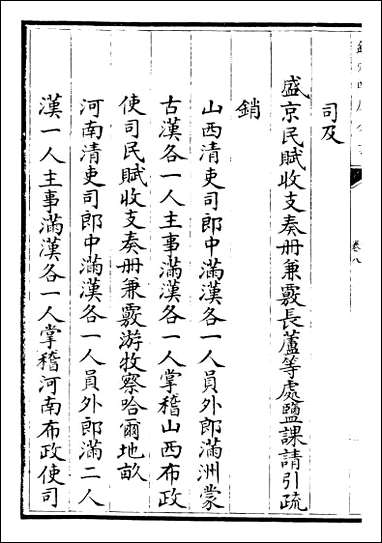 司及
盛京民賦收支奏冊兼覈長蘆等處鹽課請引疏
銷
山西清吏司郎中滿漢各一人員外郎滿洲蒙
古漢各一人主事滿漢各一人掌稽山西布政
使司民賦收支奏冊兼覈游牧察哈爾地畝
河南清吏司郎中滿漢各一人員外郎滿二人
漢一人主事滿漢各一人掌稽河南布政使司
卷八